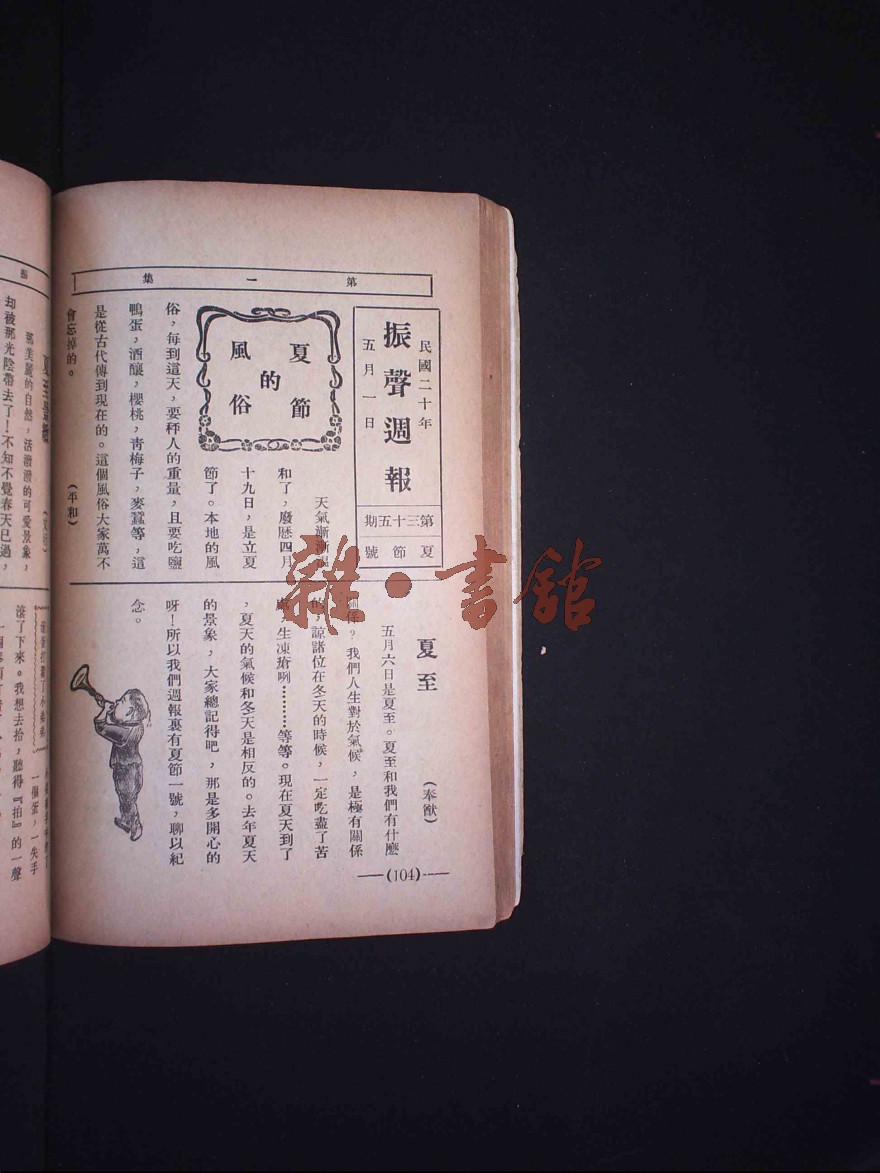 第一集
民國二十年
五月一日
振聲週報
第三十五期
夏節號
夏節
的
風俗
天氣漸漸
和了，廢歷四月
十九日，是立夏
節了。本地的風
俗，每到這天，要秤人的重量，且要吃鹽
鴨蛋，酒釀，櫻桃，靑梅子，麥蠶等，這
是從古代傳到現在的。這個風俗大家萬不
會忘掉的。
（平和）
夏至
（奉猷）
五月六日是夏至。夏至和我們有什麽
關係？我們人生對於氣候，是極有關係
的，諒諸位在冬天的時候，一定吃盡了苦
處，生凍瘡咧………等等。現在夏天到了
，夏天的氣候和冬天是相反的。去年夏天
的景象，大家總記得吧，那是多開心的
呀！所以我們週報裏有夏節一號，聊以紀
念。
(104)
夏至
那美麗的自然，活潑潑的可愛景象，
却被那光陰帶去了！不知不覺春天已過，
一個蛋，一失手
滾了下來。我想去拾，聽得『拍』的一聲
雜·書館